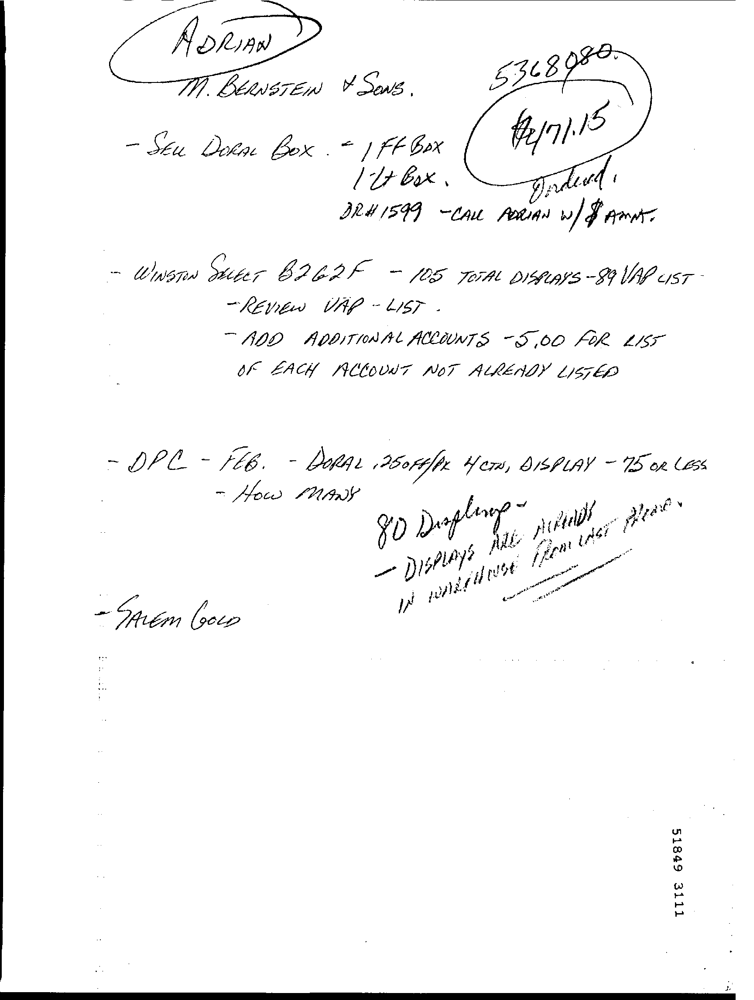 ADRIAN
M. BERNSTEIN & SONS.
5368980.
$471.15
- SELL DORAL BOX. - 1 FF BOX
1 Lt Box.
Ordered.
DR# 1599 - CALL ADRIAN W/ $ AMNT.
- WINSTON SELECT B2G2F - 105 TOTAL DISPLAYS - 89 VAP LIST -
- REVIEW VAP - LIST.
- ADD ADDITIONAL ACCOUNTS - 5.00 FOR LIST
OF EACH ACCOUNT NOT ALREADY LISTED
- DPC - FEB. - DORAL .25 OFF/PK 4 CTN, DISPLAY - 75 OR LESS
- HOW MANY
80 Displays -
- DISPLAYS ARE ALREADY
IN WAREHOUSE FROM LAST PROMO.
- SALEM GOLD
51849 3111